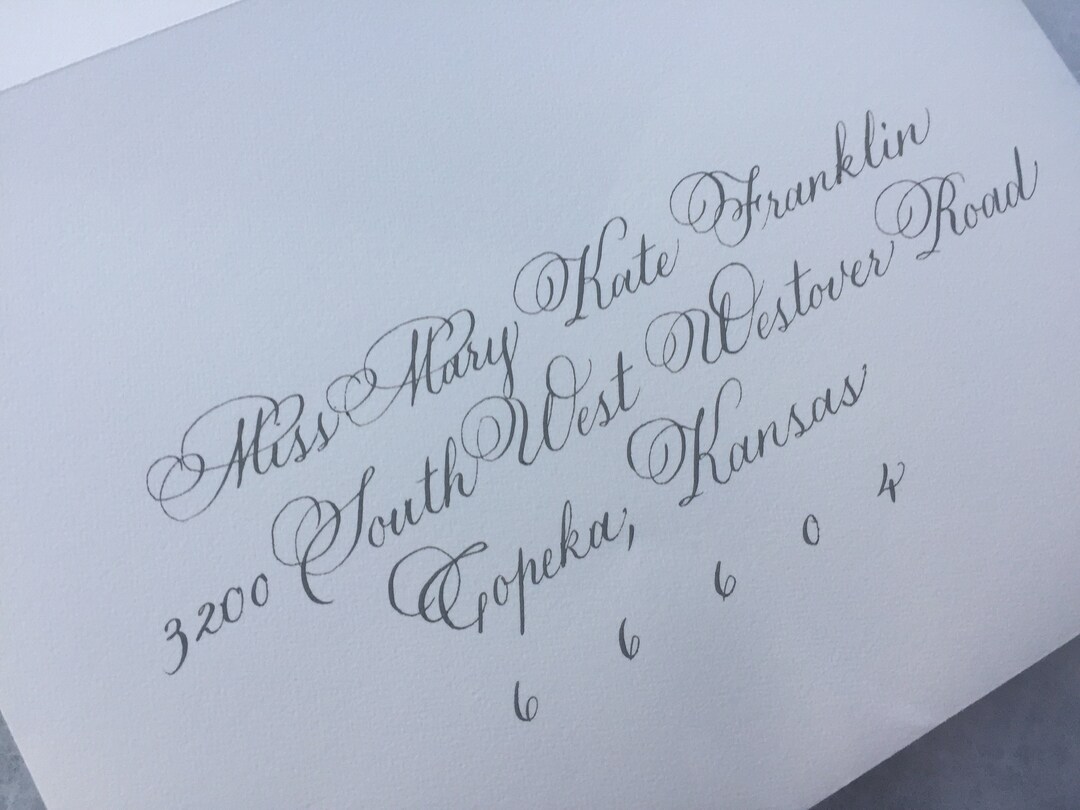 Miss Mary Kate Franklin
3200 South West Westover Road
Topeka, Kansas
6 6 6 0 4